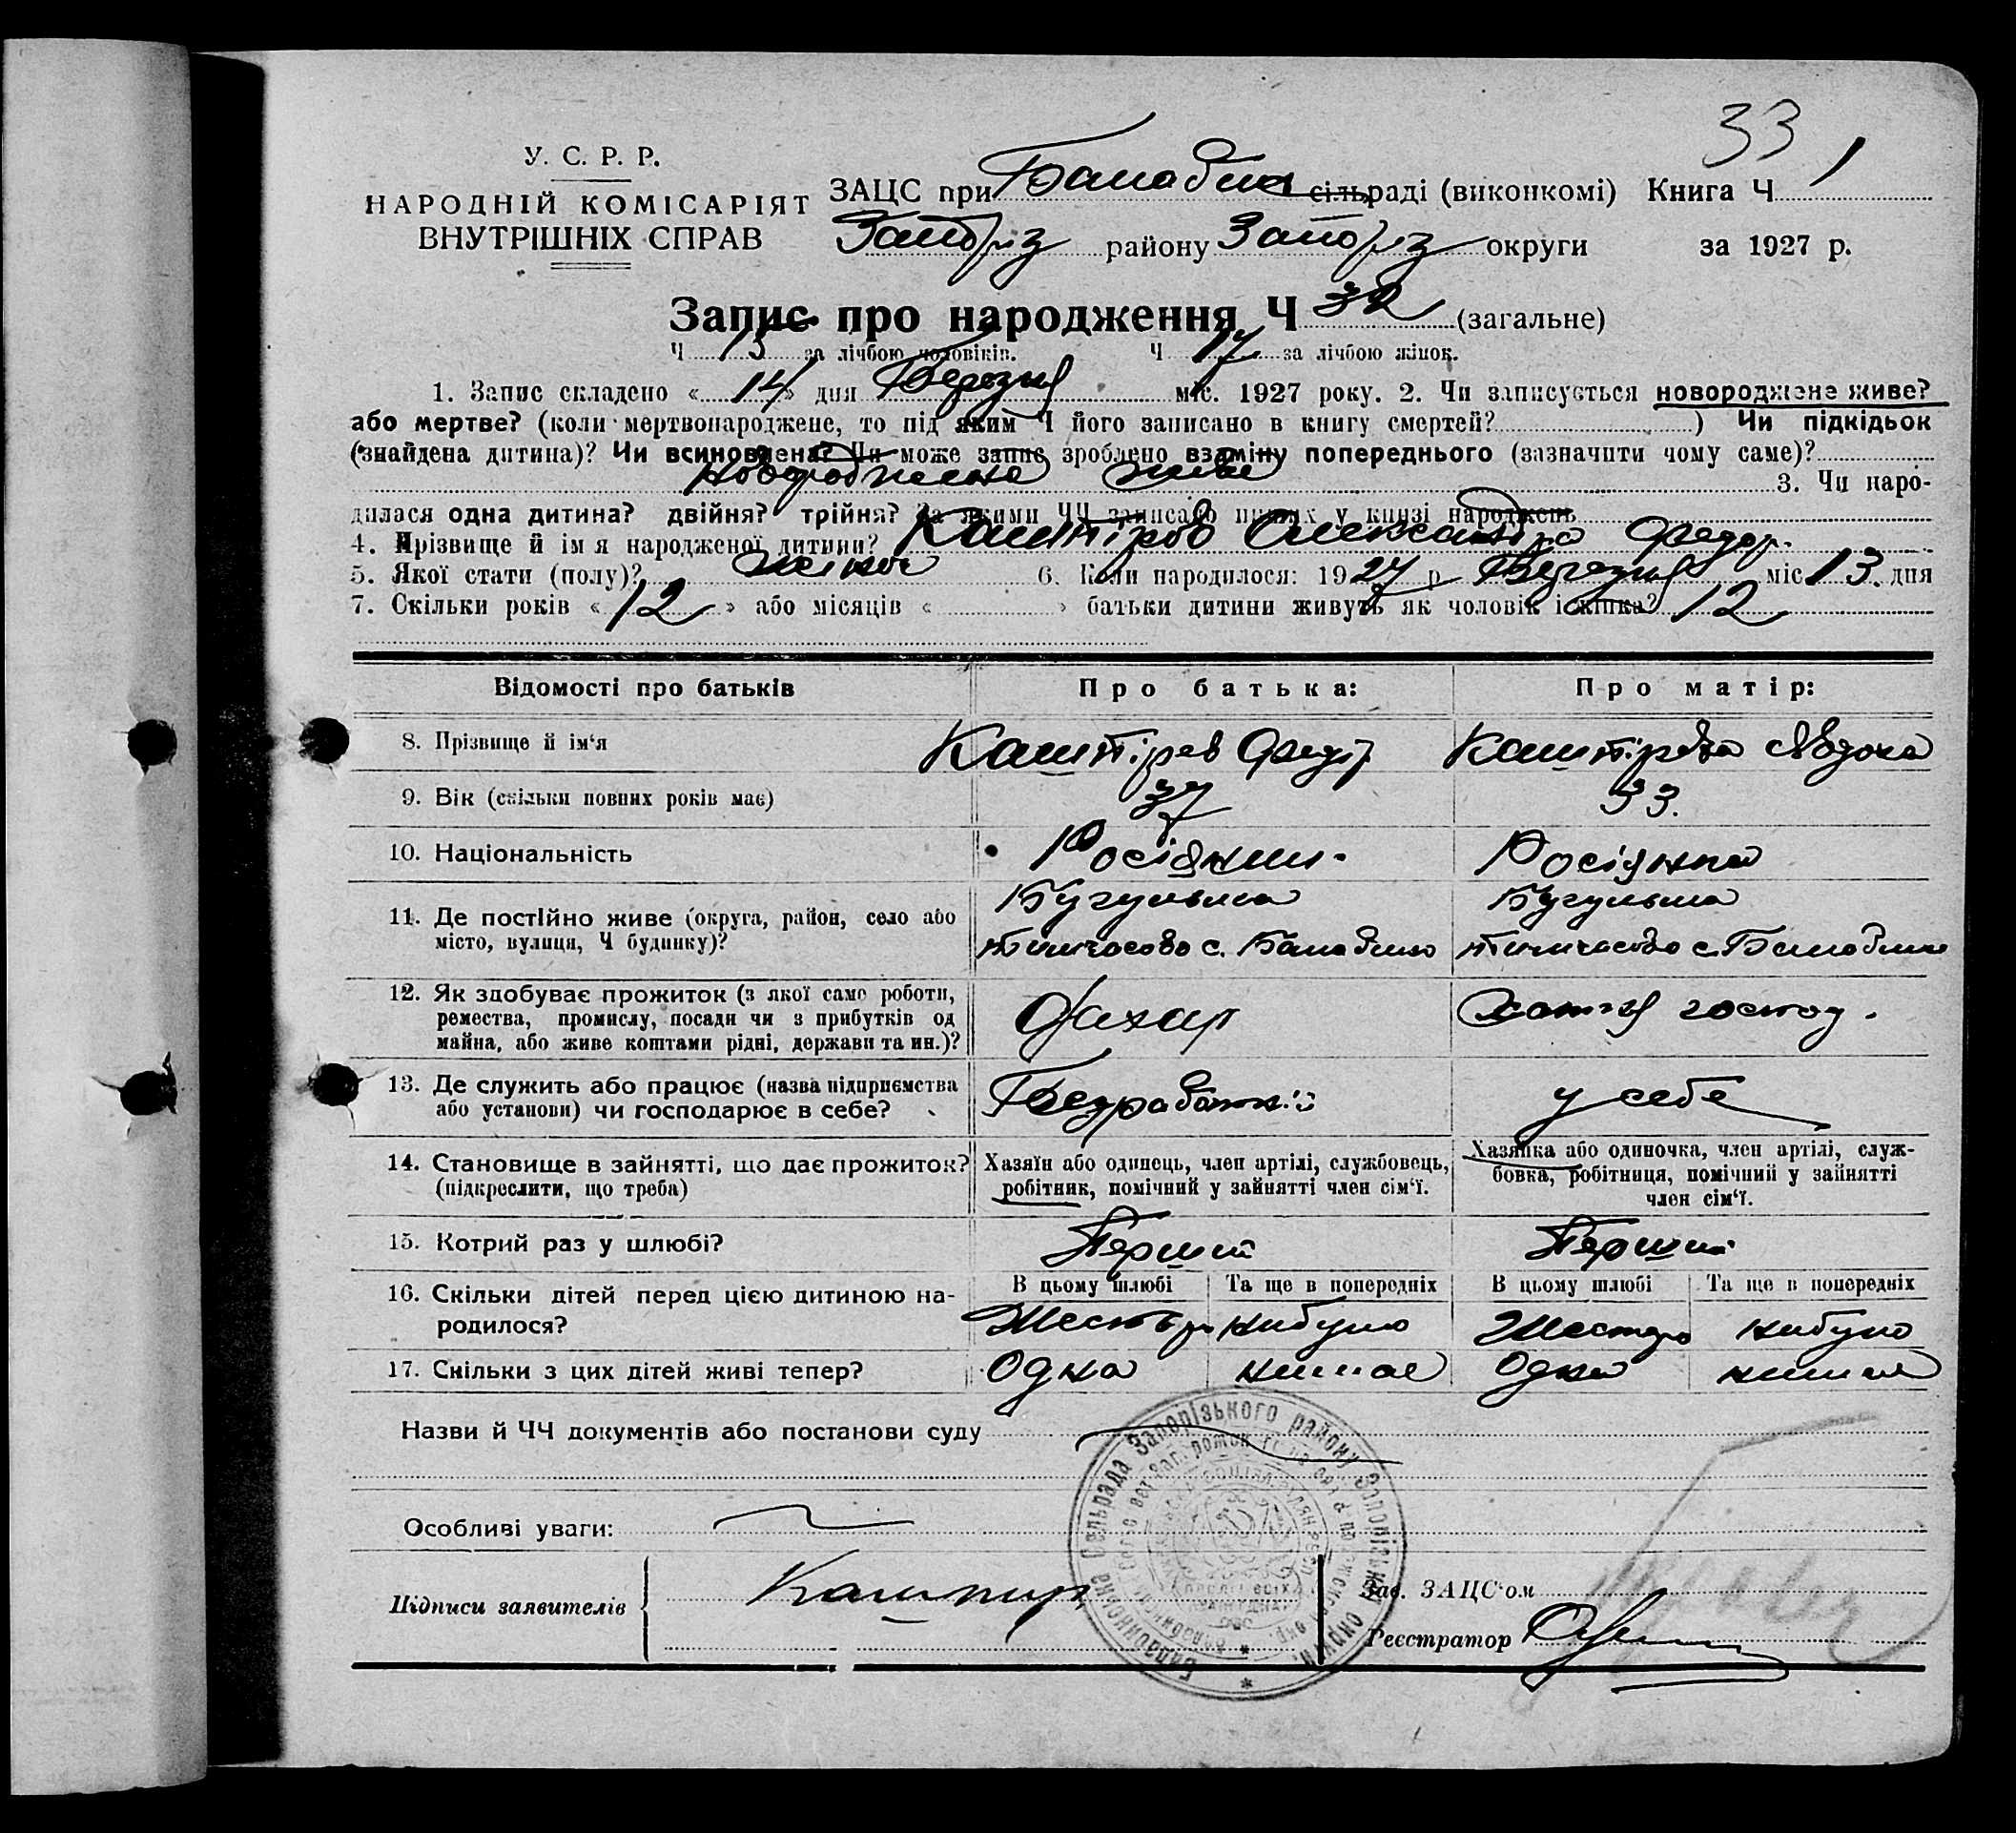 33
У. С. Р. Р.
НАРОДНІЙ КОМІСАРІЯТ
ВНУТРІШНІХ СПРАВ
ЗАЦС при Балабин сільраді (виконкомі) Книга Ч 1
Запоріз району Запоріз округи за 1927 р.
Запис про народження Ч 32 (загальне)
Ч 15 за лічбою чоловіків. Ч 17 за лічбою жінок.
1. Запис складено « 14 » дня Березня міс. 1927 року. 2. Чи записується новороджене живе?
або мертве? (коли мертвонароджене, то під яким Ч його записано в книгу смертей? ) Чи підкідьок
(знайдена дитина)? Чи всиновлена? Чи може запис зроблено взаміну попереднього (зазначити чому саме)?
новороджене живе 3. Чи наро-
дилася одна дитина? двійня? трійня? За якими ЧЧ записано інших у книзі народжень
4. Прізвище й ім'я народженої дитини? Каштірова Олександра Федор.
5. Якої стати (полу)? жіноч 6. Коли народилося: 1927 р Березня міс 13. дня
7. Скільки років « 12 » або місяців « » батьки дитини живуть як чоловік і жінка? 12
Відомості про батьків Про батька: Про матір:
8. Прізвище й ім'я Каштірев Федір Каштірова Явдоха
9. Вік (скільки повних років має) 37 33.
10. Національність Росіянин. Росіянка
11. Де постійно живе (округа, район, село або Бугульма Бугульма
місто, вулиця, Ч будинку)? тимчасово с. Балабино тимчасово с. Балабине
12. Як здобуває прожиток (з якої саме роботи,
ремества, промислу, посади чи з прибутків од
майна, або живе коштами рідні, держави та ин.)? хатня господ.
13. Де служить або працює (назва підприємства
або установи) чи господарює в себе? Безработній у себе
14. Становище в зайнятті, що дає прожиток? Хазяїн або одинець, член артілі, службовець, Хазяйка або одиночка, член артілі, служ-
(підкреслити, що треба) робітник, помічний у зайнятті член сім'ї. бовка, робітниця, помічний у зайнятті
член сім'ї.
15. Котрий раз у шлюбі? Перший Перший
16. Скільки дітей перед цією дитиною на- В цьому шлюбі Та ще в попередніх В цьому шлюбі Та ще в попередніх
родилося? Шестеро небуло Шестеро небуло
17. Скільки з цих дітей живі тепер? Одна немає Одна немає
Назви й ЧЧ документів або постанови суду
Особливі уваги:
Підписи заявителів Каштир
Зав. ЗАЦС'ом
Реєстратор
Балабинська Сельрада Запорізького району Запорізької округи